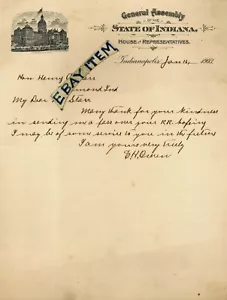 General Assembly
OF THE
STATE OF INDIANA.
HOUSE OF REPRESENTATIVES.
Indianapolis, Jan 14, 190
Hon Henry
mond Ind
My Dear Starr
EBAY ITEM
Many thanks for your kindness
in sending me a pass over your R.R. hoping
I may be of some service to you in the future
I am yours very truly